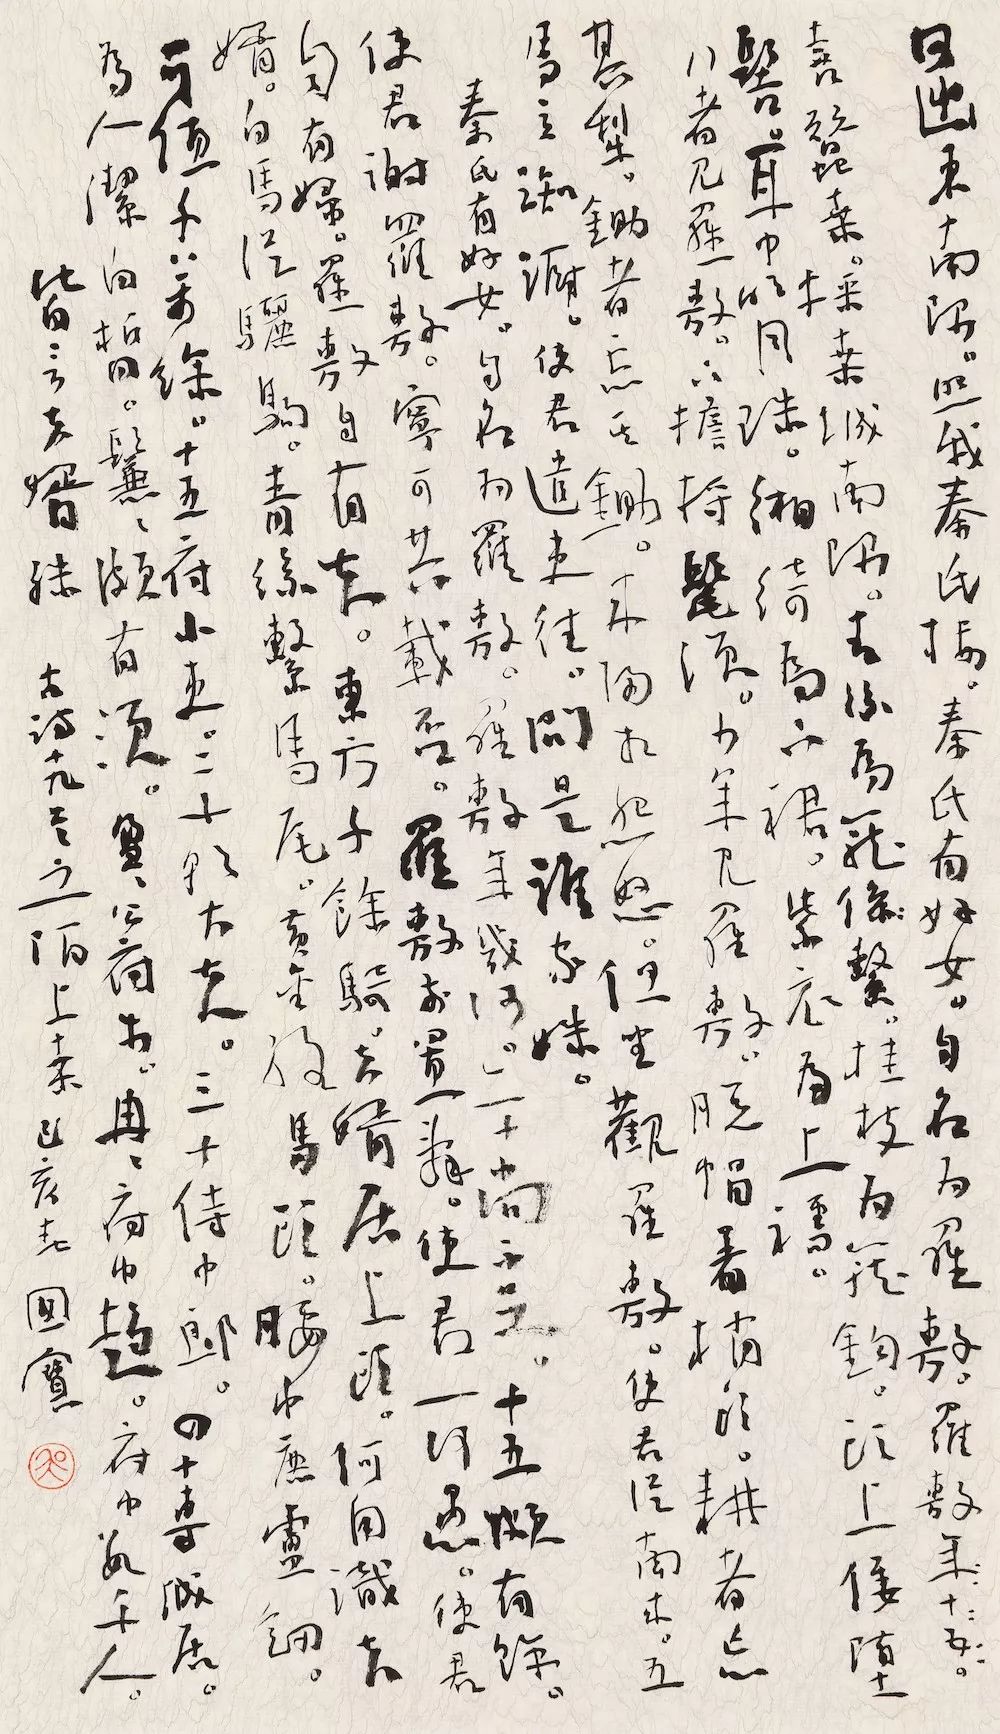 日出東南隅。照我秦氏樓。秦氏有好女。自名为羅敷。羅敷年十五。
喜蠶桑。采桑城南隅。青絲為籠係繫。桂枝为籠鉤。頭上倭墮
髻。耳中明月珠。緗綺為下裙。紫衣為上襦。
行者見羅敷。下擔捋髭須。少年見羅敷。脫帽著梢頭。耕者忘
其犁。鋤者忘其鋤。來歸相怨怒。但坐觀羅敷。使君從南來。五
馬立踟躕。使君遣吏往。問是誰家姝。
秦氏有好女。自名为羅敷。羅敷年幾何。二十尚不足。十五頗有餘。
使君謝羅敷。寧可共載否。羅敷前置辭。使君一何愚。使君
自有婦。羅敷自有夫。東方千餘騎。夫婿居上頭。何用識夫
婿。白馬從驪駒。青絲繫馬尾。黃金絡馬頭。腰中鹿盧劍。
可值千萬餘。十五府小吏。二十朝大夫。三十侍中郎。四十專城居。
為人潔白皙。鬑々頗有須。盈々公府步。冉々府中趨。府中數千人。
皆言夫婿殊 古詩十九首之陌上桑 己亥春 國寶